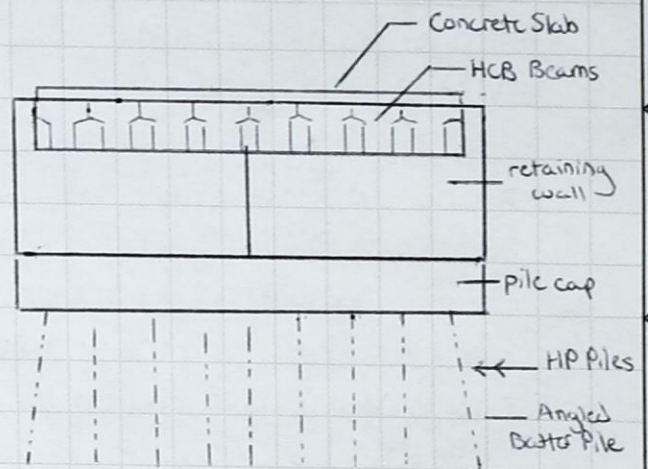 Concrete Slab
HCB Beams
retaining
wall
pile cap
HP Piles
Angled
Batter Pile